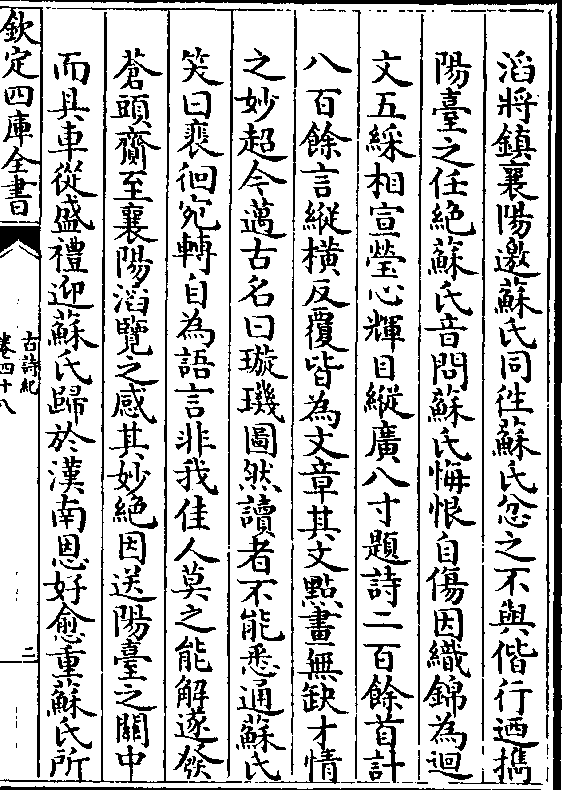 滔將鎮襄陽邀蘇氏同徃蘇氏忿之不與偕行廼擕
陽臺之任絶蘇氏音問蘇氏悔恨自傷因織錦為迴
文五綵相宣瑩心輝目縱廣八寸題詩二百餘首計
八百餘言縱横反覆皆為文章其文㸃畫無缺才情
之妙超今邁古名曰璇璣圖然讀者不能悉通蘇氏
笑曰裵徊宛轉自為語言非我佳人莫之能解遂發
蒼頭齎至襄陽滔覽之感其妙絶因送陽臺之關中
而具車從盛禮迎蘇氏歸於漢南恩好愈重蘇氏所
欽定四庫全書
古詩紀
卷四十八
二